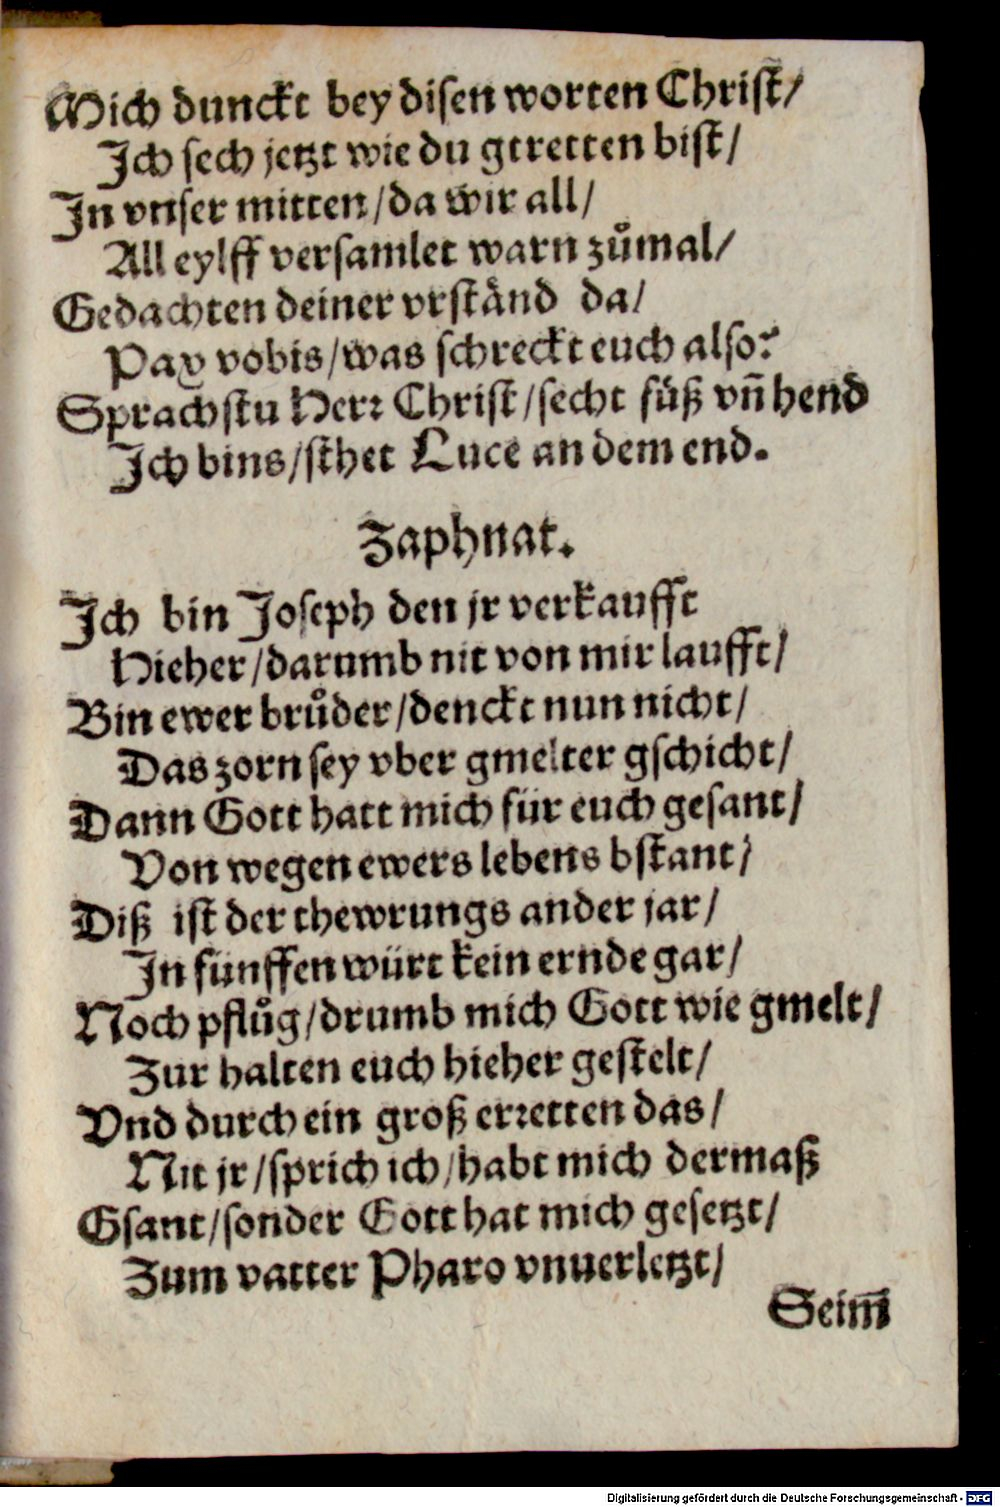 Mich dunckt bey disen worten Christ/
Ich sech jetzt wie du gtretten bist/
In vnser mitten/da wir all/
All eylff versamlet warn zůmal/
Gedachten deiner vrständ da/
Pax vobis/was schreckt euch also?
Sprachstu Herr Christ/secht füß vn̄ hend
Ich bins/sthet Luce an dem end.
Zaphnat.
Ich bin Joseph den jr verkaufft
Hieher/darumb nit von mir laufft/
Bin ewer brůder/denckt nun nicht/
Das zorn sey vber gmelter gschicht/
Dann Gott hatt mich für euch gesant/
Von wegen ewers lebens bstant/
Diß ist der thewrungs ander jar/
In fünffen würt kein ernde gar/
Noch pflůg/drumb mich Gott wie gmelt/
Zur halten euch hieher gestelt/
Vnd durch ein groß erretten das/
Nit jr/sprich ich/habt mich dermaß
Gsant/sonder Gott hat mich gesetzt/
Zum vatter Pharo vnuerletzt/
Seim̄
Digitalisierung gefördert durch die Deutsche Forschungsgemeinschaft - DFG